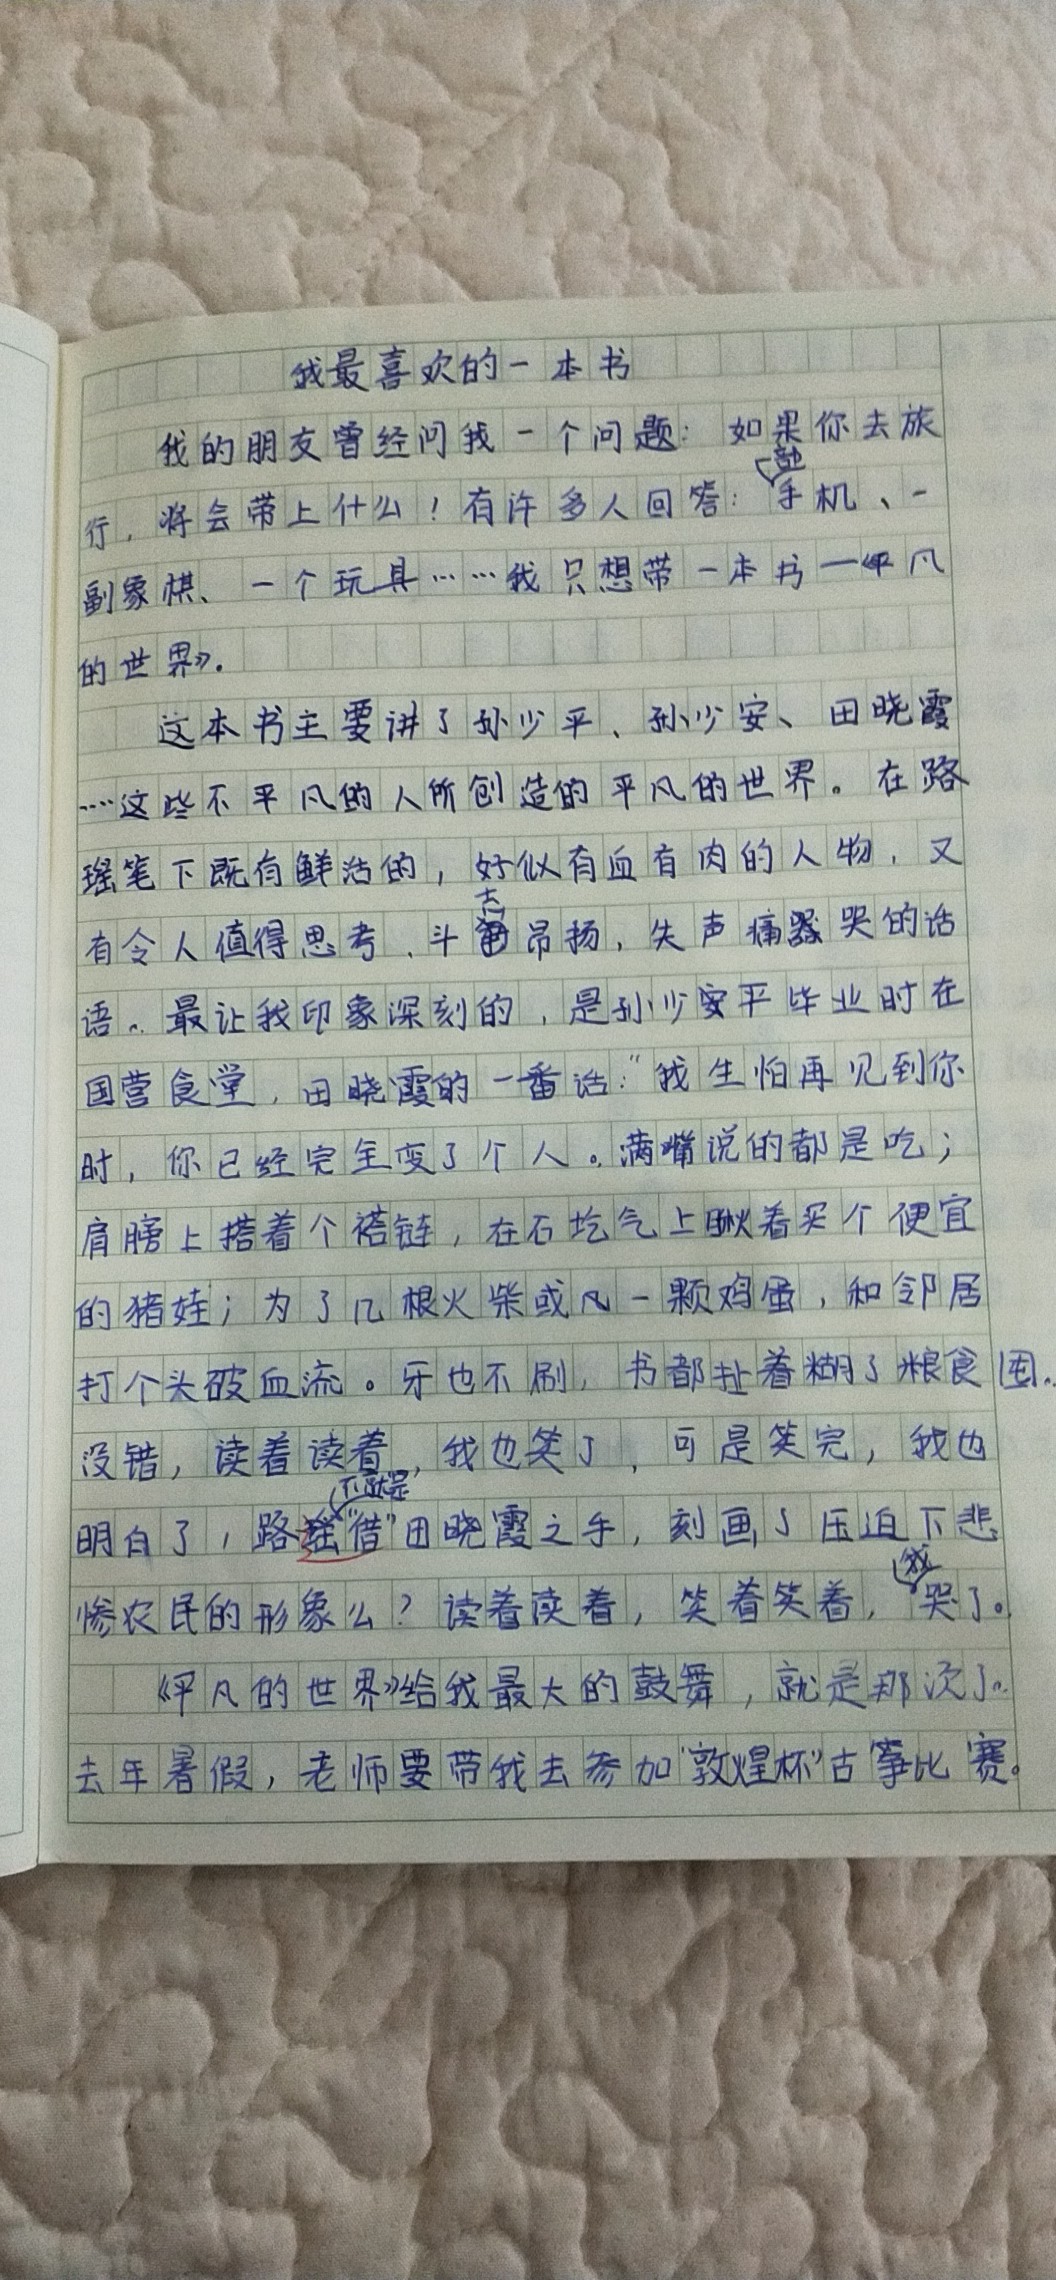 我最喜欢的一本书
我的朋友曾经问我一个问题：如果你去旅
行，将会带上什么！有许多人回答：一部手机、一
副象棋、一个玩具……我只想带一本书—《平凡
的世界》。
这本书主要讲了孙少平、孙少安、田晓霞
……这些不平凡的人所创造的平凡的世界。在路
瑶笔下既有鲜活的，好似有血有肉的人物，又
有令人值得思考、斗志昂扬，失声痛哭的话
语。最让我印象深刻的，是孙少平毕业时在
国营食堂，田晓霞的一番话：“我生怕再见到你
时，你已经完全变了个人。满嘴说的都是吃；
肩膀上搭着个褡链，在石圪气上瞅着买个便宜
的猪娃；为了几根火柴或一颗鸡蛋，和邻居
打个头破血流。牙也不刷，书都扯着糊了粮食囤。
没错，读着读着，我也笑了，可是笑完，我也
明白了，路瑶不就是“借”田晓霞之手，刻画了压迫下悲
惨农民的形象么？读着读着，笑着笑着，我哭了。
《平凡的世界》给我最大的鼓舞，就是那次了。
去年暑假，老师要带我去参加“敦煌杯”古筝比赛。